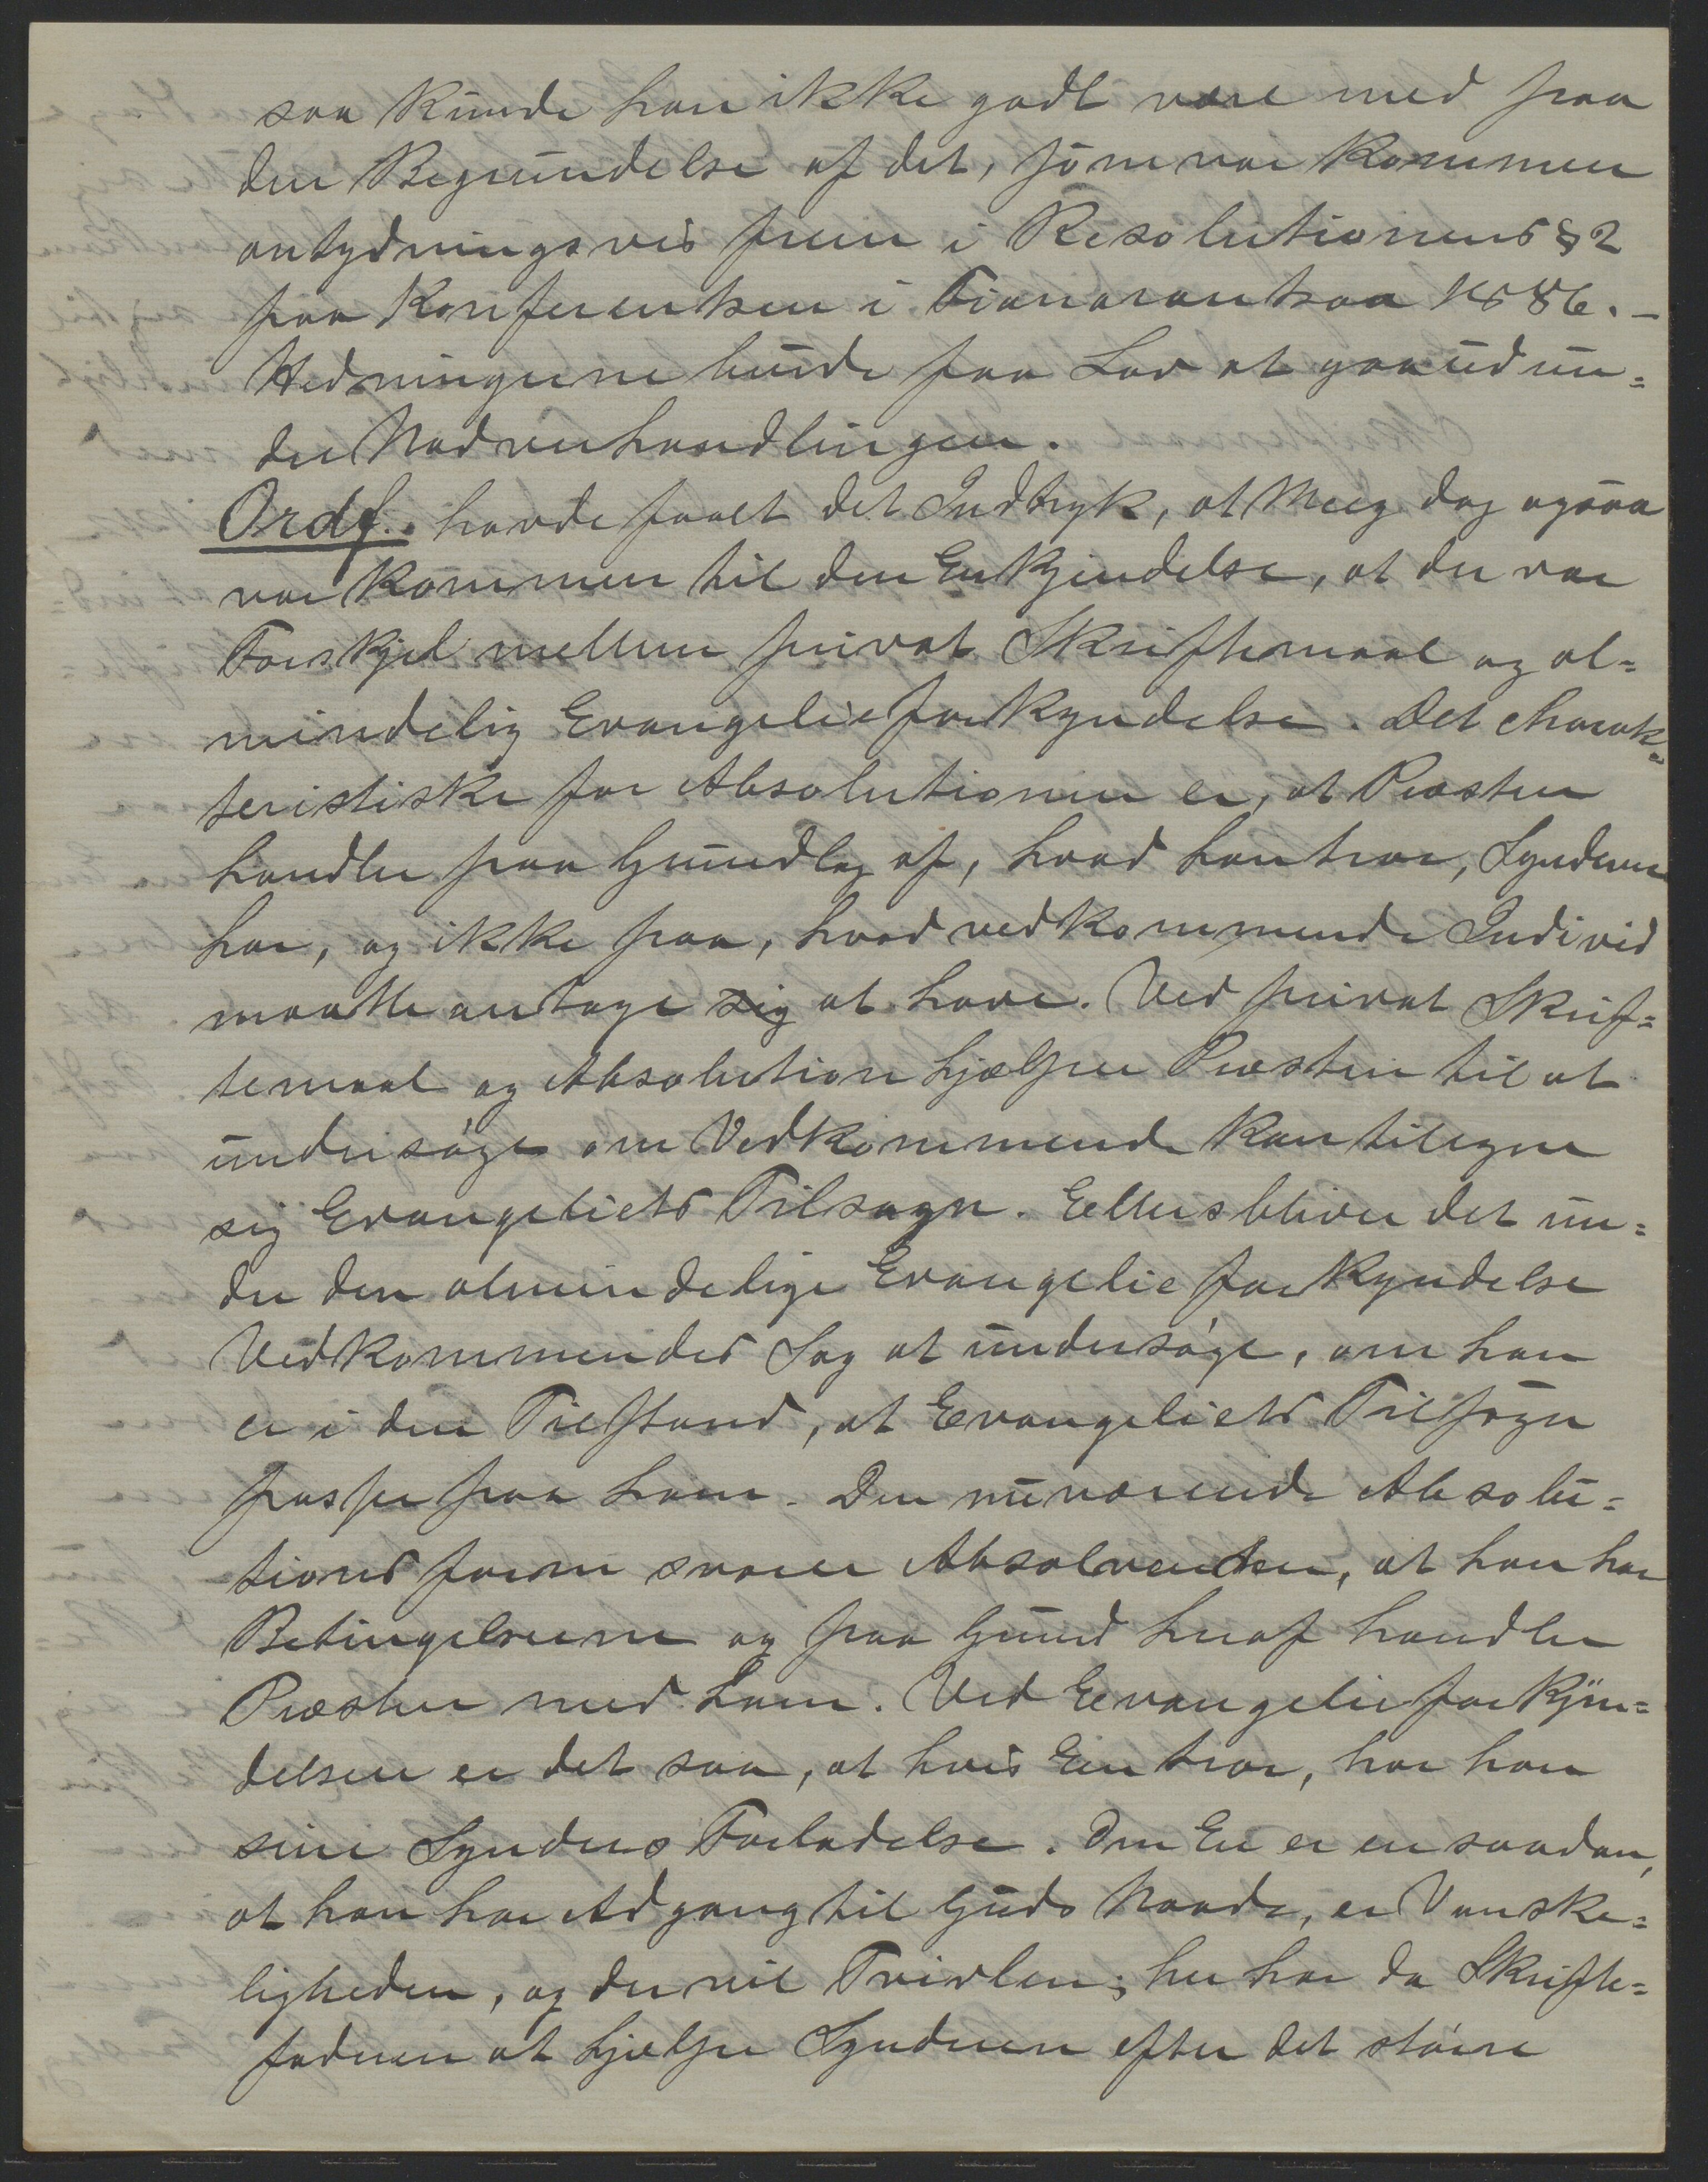 saa kunde han ikke godt være med paa
den Begrundelse af det, som var kommen
antydningsvis frem i Resolutionens § 2
paa Konferentsen i Fianarantsoa 1886. -
Hedningerne burde faa Lov at gaa ud un=
der Nadverhandlingen.
Ordf. havde faaet det Indtryk, at Meeg dog ogsaa
var kommen til den Erkjendelse, at der var
Forskjel mellem privat Skriftemaal og al=
mindelig Evangelieforkyndelse. Det charak=
teristiske for Absolutionen er, at Præsten
handler paa Grundlag af, hvad han tror, Synderen
har, og ikke paa, hvad vedkommende Individ
maatte antage sig at have. Ved privat Skrif=
temaal og Absolution hjælper Præsten til at
undersøge om Vedkommende kan tilegne
sig Evangeliets Tilsagn. Ellers bliver det un=
der den almindelige Evangelieforkyndelse
Vedkommendes Sag at undersøge, om han
er i den Tilstand, at Evangeliets Tilsagn
passer paa ham. Den nuværende Absolu=
tionsform svarer Absolventen, at han har
Betingelserne og paa Grund heraf handler
Præsten med ham. Ved Evangelieforkyn=
delsen er det saa, at hvis Een tror, har han
sine Synders Forladelse. Om En er en saadan,
at han har Adgang til Guds Naade, er Vanske=
ligheden, og der vil Tvivlen; her har da Skrifte=
faderen at hjælpe Synderen efter det større